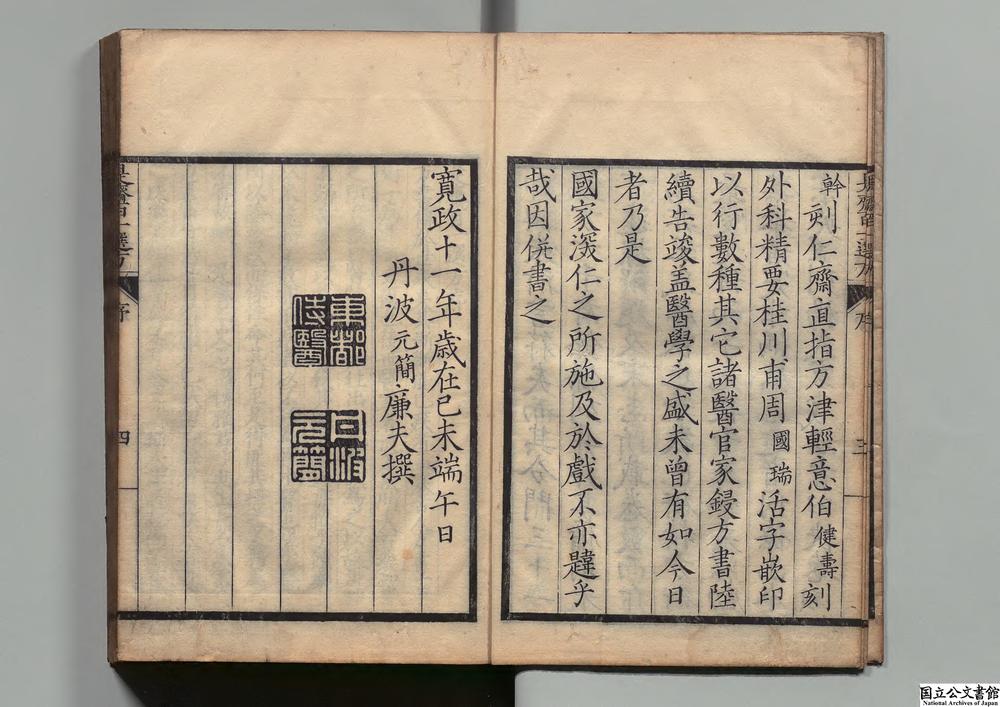 是齋百一選方 序 三
幹刻仁齋直指方津輕意伯健壽刻
外科精要桂川甫周國瑞活字嵌印
以行數種其它諸醫官家鋟方書陸
續告竣盖醫學之盛未曾有如今日
者乃是
國家㴱仁之所施及於戲不亦韙乎
哉因併書之
寬政十一年歲在己未端午日
丹波元簡廉夫撰
東都侍醫
丹波元簡
是齋百一選方 序 四
国立公文書館
National Archives of Japan